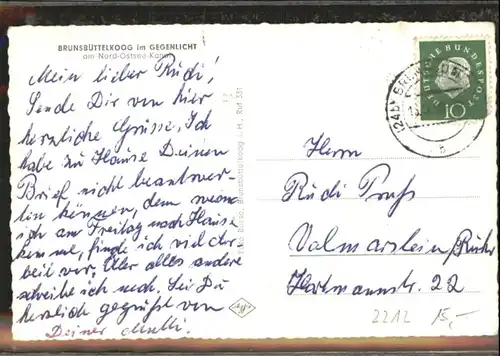 BRUNSBÜTTELKOOG im GEGENLICHT
am Nord-Ostsee-Kanal
Mein lieber Rudi!
Sende Dir von hier
herzliche Grüsse. Ich
habe zu Hause Deinen
Brief nicht beantwor-
ten können, denn wenn
ich am Freitag nach Hause
komme, finde ich viel Ar-
beit vor. Über alles andere
schreibe ich noch. Sei Du
herzlich gegrüßt von
Deiner
DEUTSCHE BUNDESPOST
10
(24b)
Herrn
Rudi
Volmarstein/Ruhr
Hartmannstr. 22
Agfa
2212 15,-
Brunsbüttelkoog Ruf 331